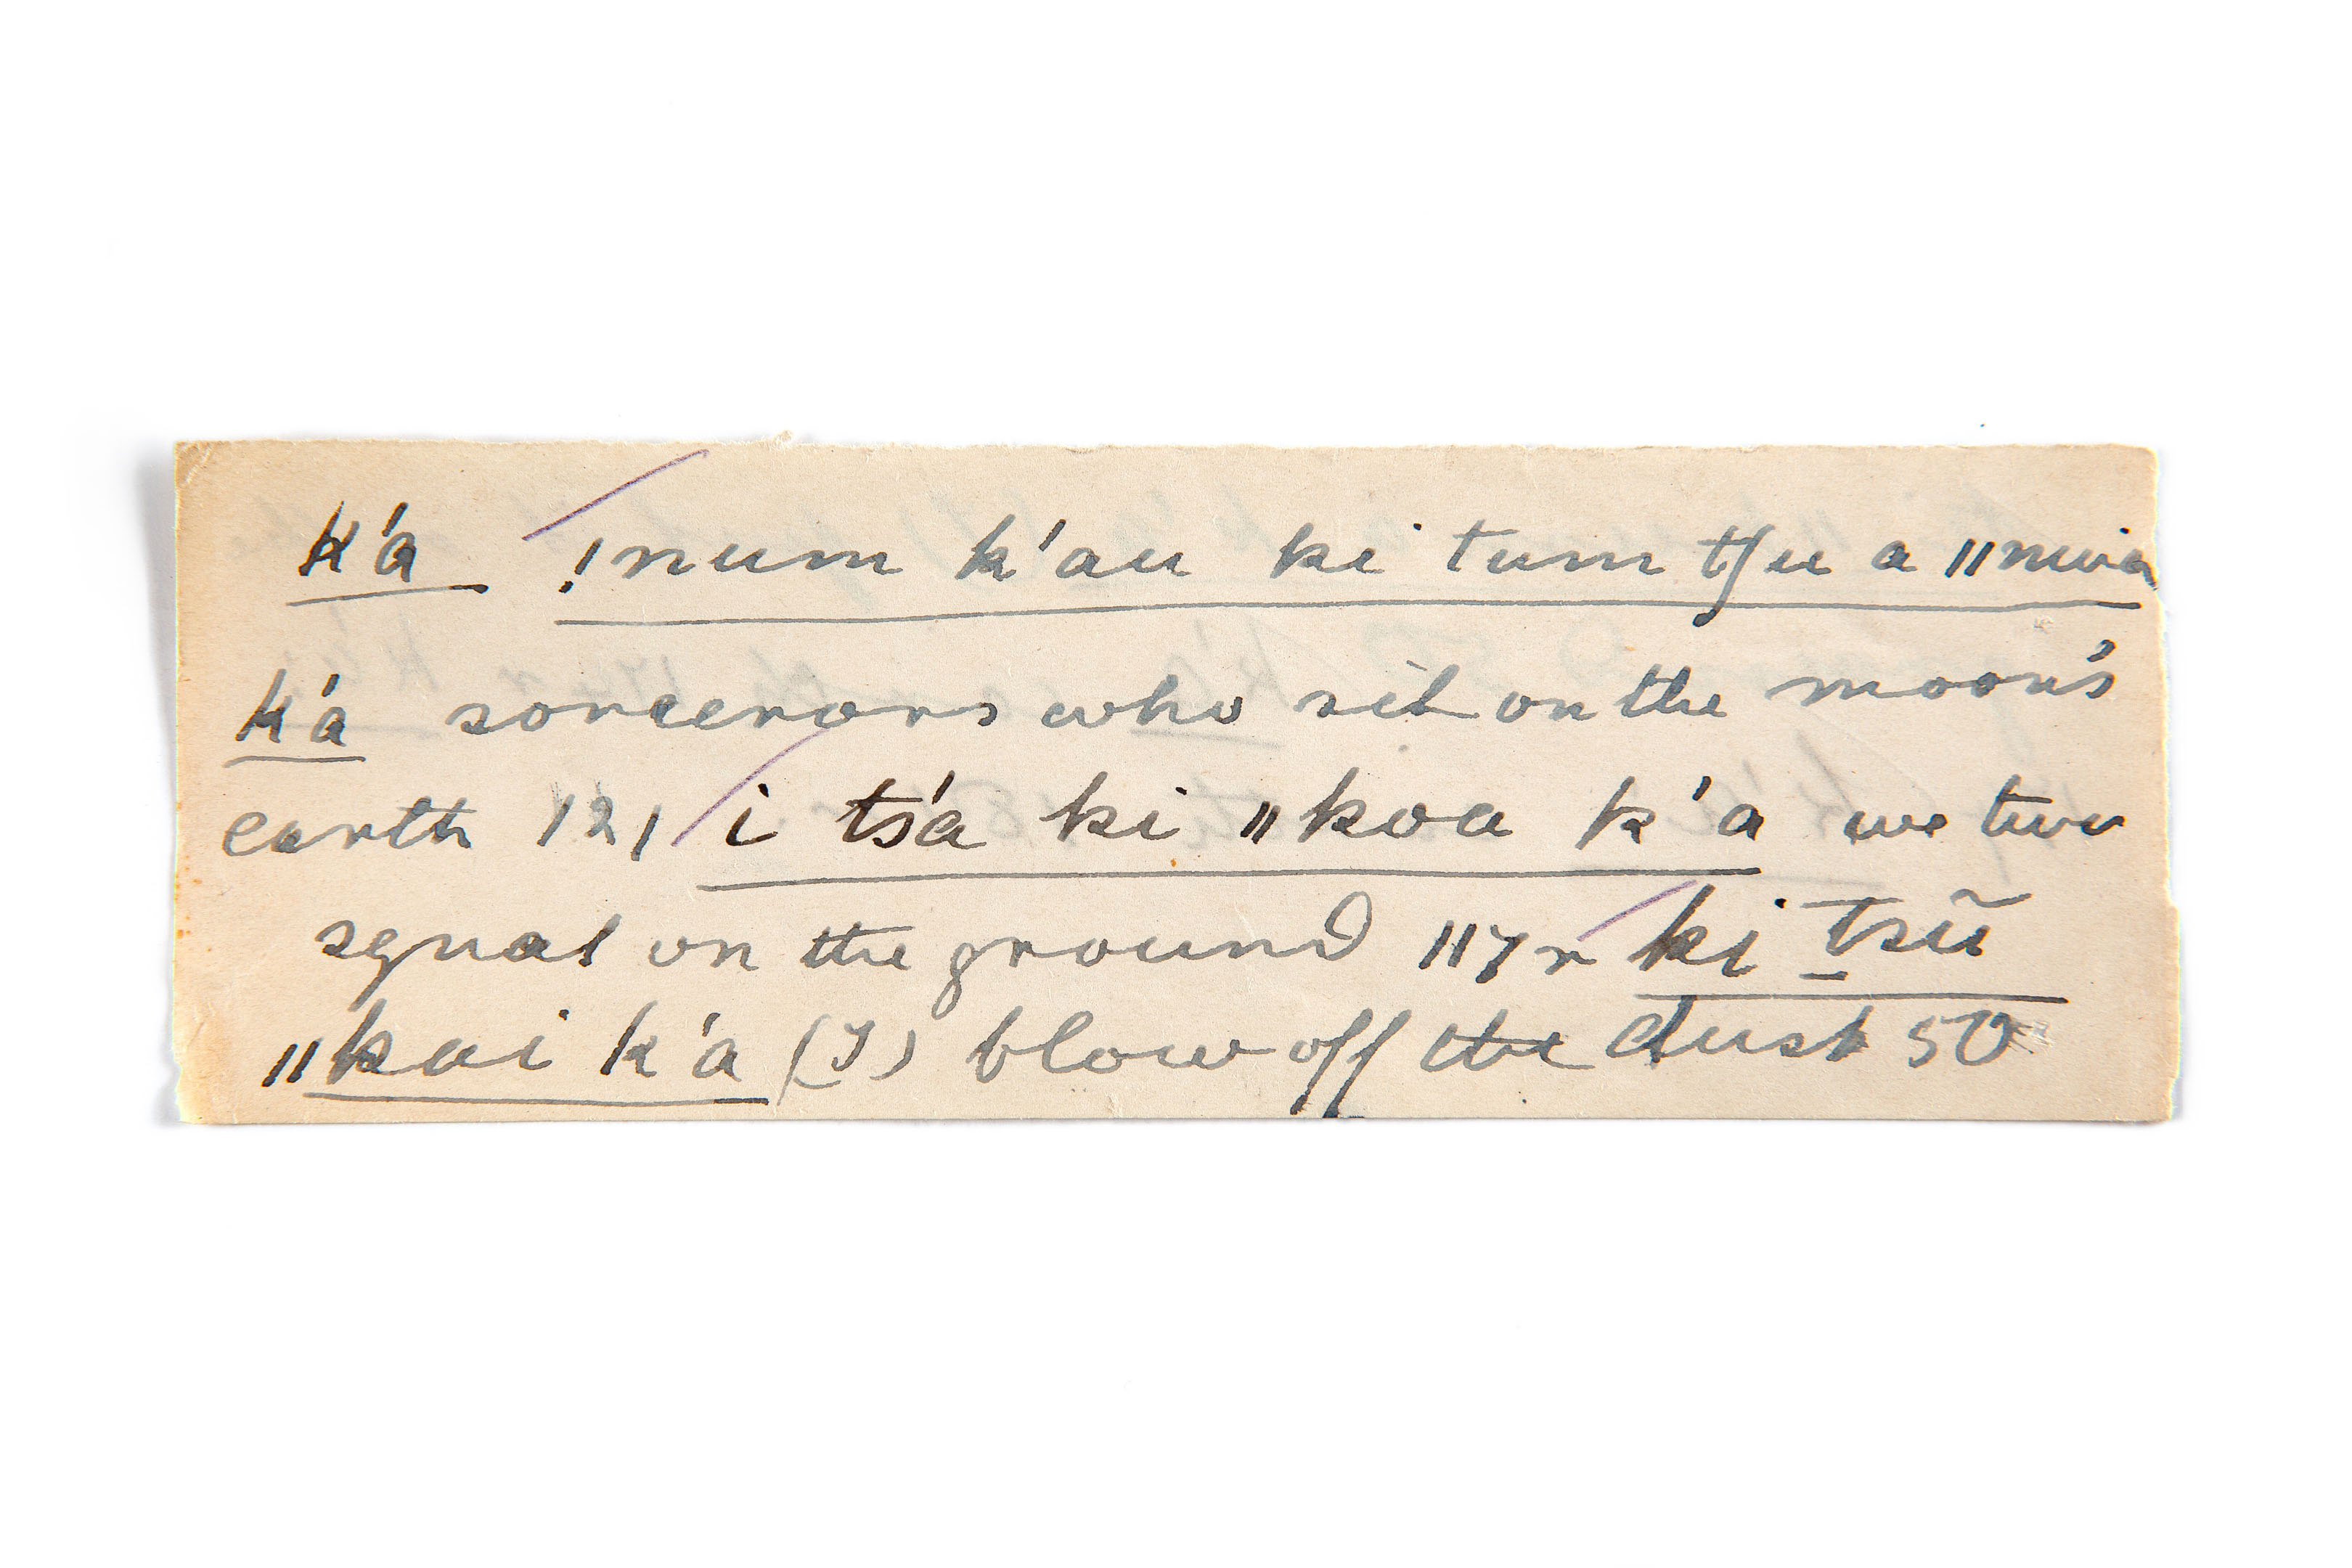 k'a !num k'au ki tum tʃu a ǁnwia
k'a sorcerors who sit on the moon's
earth 121 i ts'a ki ǁkoa k'a we two
squat on the ground 117r ki tsũ
ǁkai k'a (I) blow off the dust 50